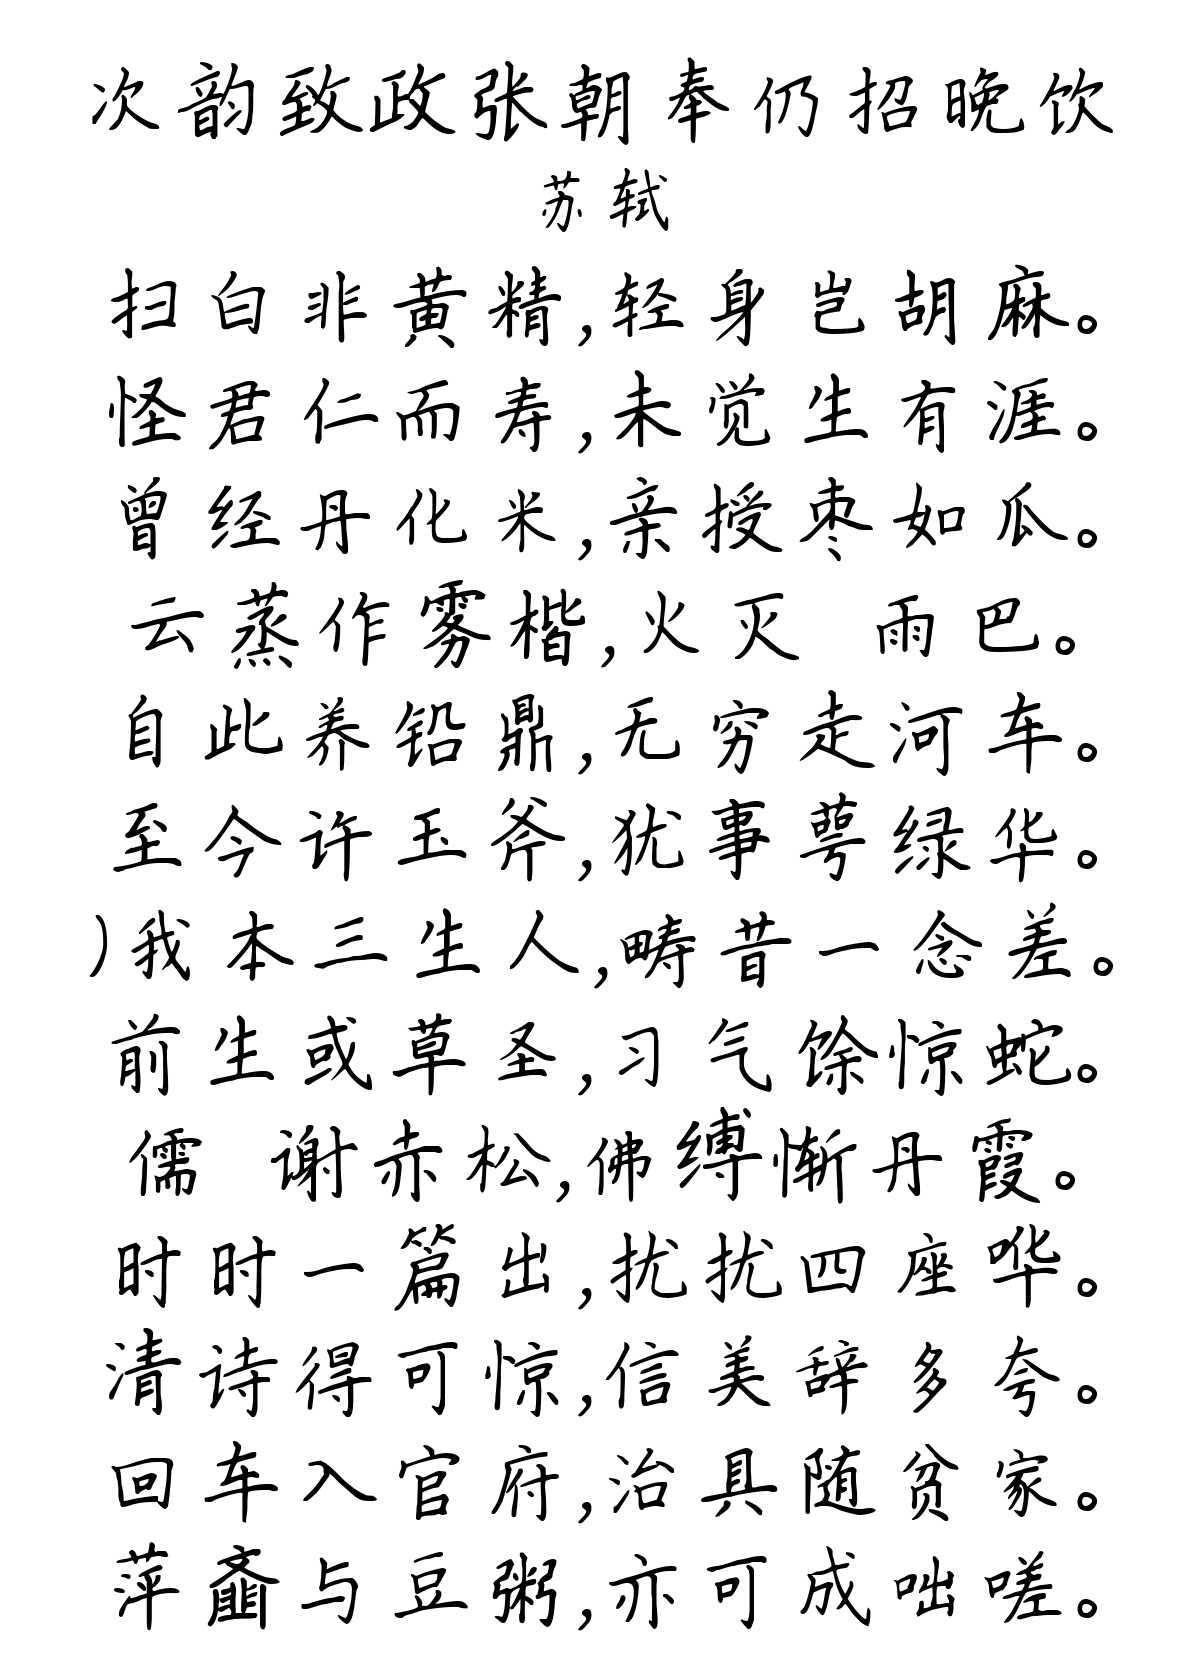 次韵致政张朝奉仍招晚饮
苏轼
扫白非黄精,轻身岂胡麻。
怪君仁而寿,未觉生有涯。
曾经丹化米,亲授枣如瓜。
云蒸作雾楷,火灭 雨巴。
自此养铅鼎,无穷走河车。
至今许玉斧,犹事萼绿华。
)我本三生人,畴昔一念差。
前生或草圣,习气馀惊蛇。
儒 谢赤松,佛缚惭丹霞。
时时一篇出,扰扰四座哗。
清诗得可惊,信美辞多夸。
回车入官府,治具随贫家。
萍齑与豆粥,亦可成咄嗟。